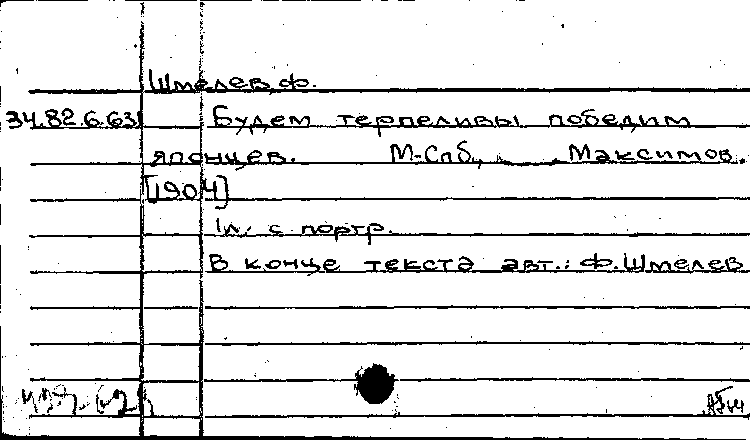 Шмелев, Ф.
34.82.6.63 Будем терпеливы победим
японцев. М-Спб, Максимов.
[1904]
1л. с портр.
В конце текста авт.: Ф. Шмелев